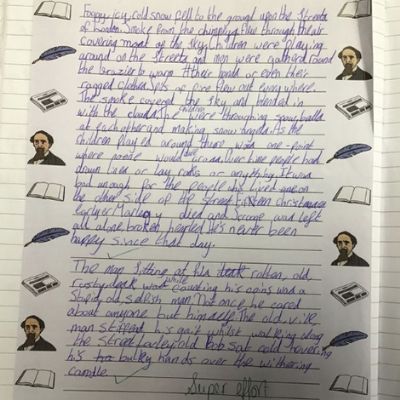 Foggy, icy, cold snow fell to the ground upon the streets
of London. Smoke from the chimneys flew through the air
covering most of the sky. Children were playing
around on the streets and men were gathered round
the brazier to warm their hands or even their
ragged clothes. of fire flew out everywhere.
The smoke covered the sky and blended in
with the clouds. The children were throughing snow balls
at each other and making snow angels. As the
children played around there was one-point
where no one would dare cross. Over time people had
drawn lines or lay rocks or anything. It was
bad enough for the people who lived
the other side of the street. Fifteen christmases
earlyer Marley died and Scrooge was left
all alone broken hearted. He's never been
happy since that day.
The man sitting at his rotten, old,
rusty desk was while counting his coins was a
stupid, old, selfish man. Not once he cared
about anyone but himself. The old, vile
man his gait whilst walking along
the street. Bob sat cold hovering
his bulky hands over the withering
candle.
Super effort